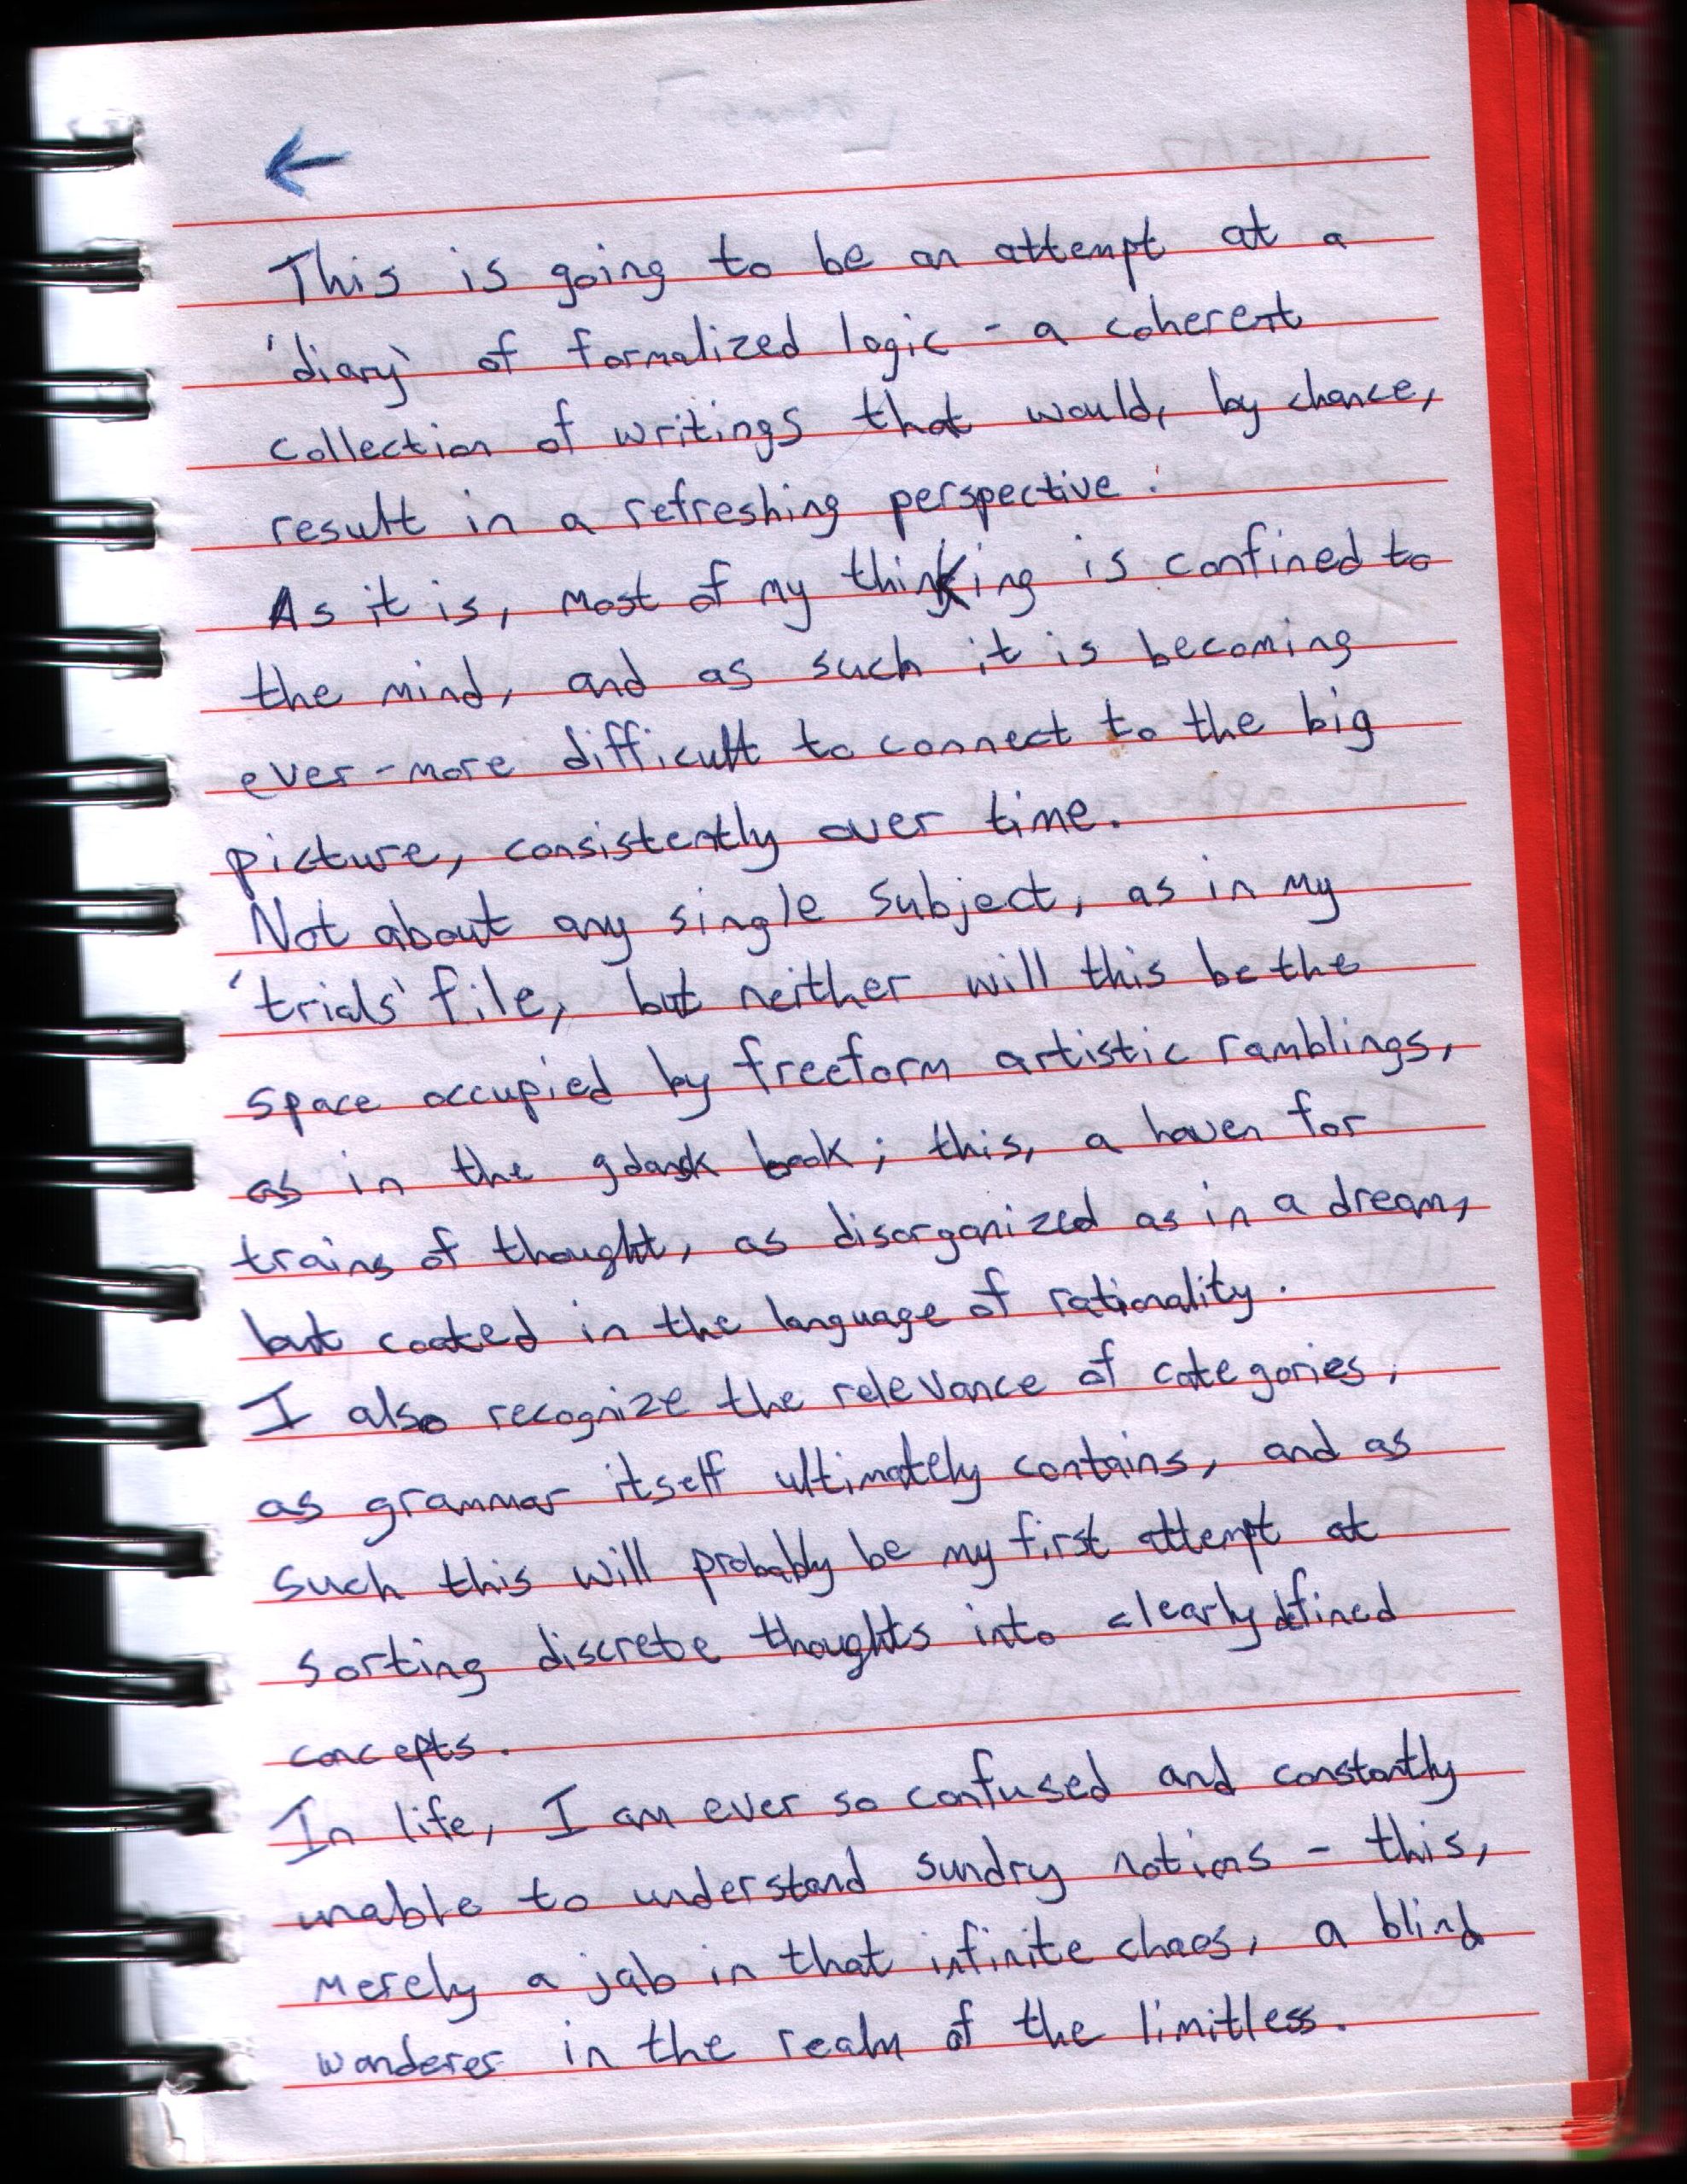 ←
This is going to be an attempt at a
'diary' of formalized logic - a coherent
collection of writings that would, by chance,
result in a refreshing perspective.
As it is, most of my thinking is confined to
the mind, and as such it is becoming
ever-more difficult to connect to the big
picture, consistently over time.
Not about any single subject, as in my
'trials' file, but neither will this be the
space occupied by freeform artistic ramblings,
as in the gdansk book; this, a haven for
trains of thought, as disorganized as in a dream,
but coated in the language of rationality.
I also recognize the relevance of categories,
as grammar itself ultimately contains, and as
such this will probably be my first attempt at
sorting discrete thoughts into clearly defined
concepts.
In life, I am ever so confused and constantly
unable to understand sundry notions - this,
merely a jab in that infinite chaos, a blind
wanderer in the realm of the limitless.